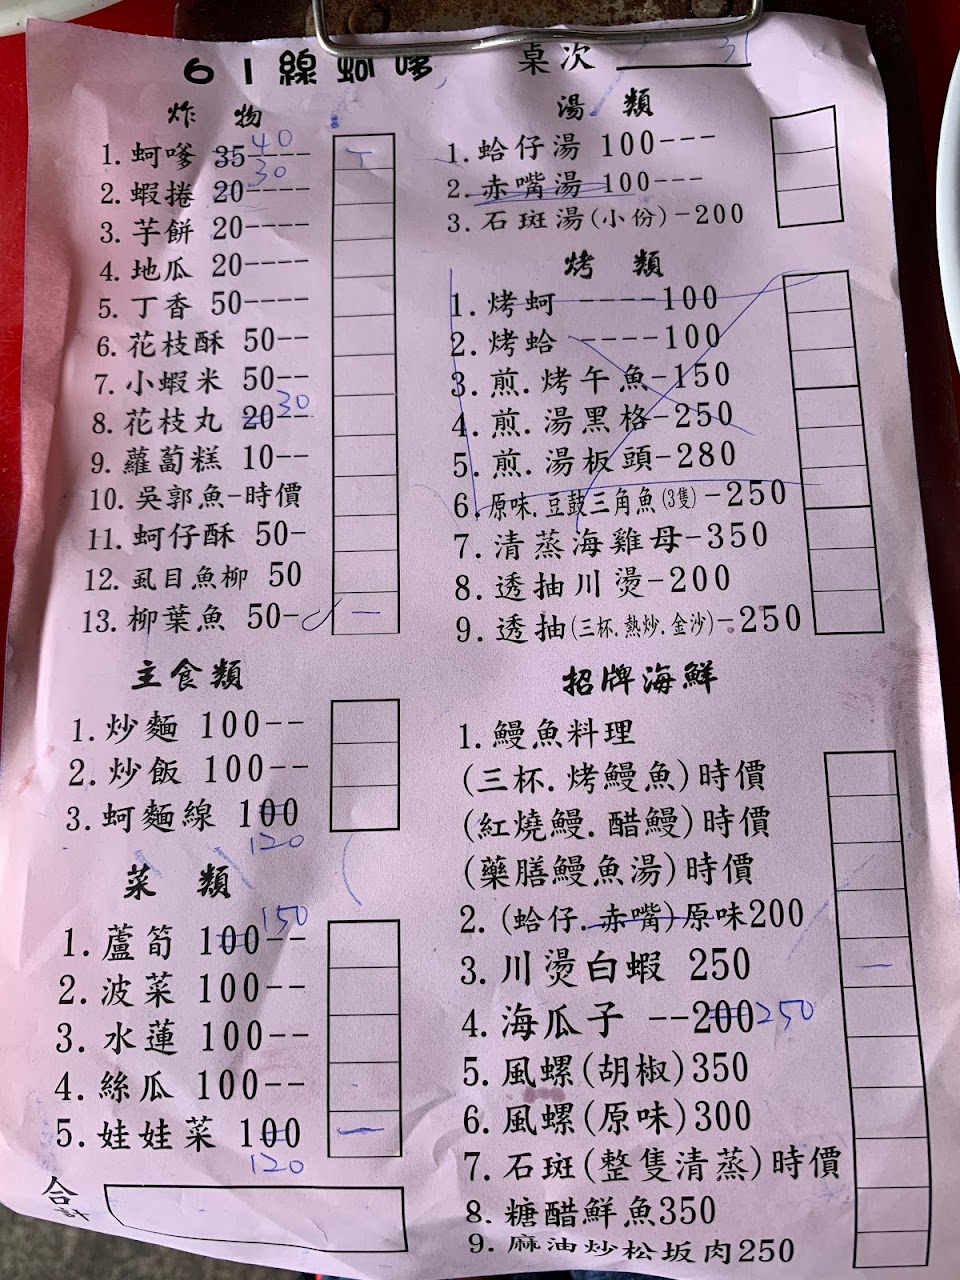 61線蚵嗲
桌次 31
炸物
1. 蚵嗲 35---- 40
2. 蝦捲 20---- 30
3. 芋餅 20----
4. 地瓜 20----
5. 丁香 50----
6. 花枝酥 50--
7. 小蝦米 50--
8. 花枝丸 20-- 30
9. 蘿蔔糕 10--
10. 吳郭魚-時價
11. 蚵仔酥 50-
12. 虱目魚柳 50
13. 柳葉魚 50- 一
主食類
1. 炒麵 100--
2. 炒飯 100--
3. 蚵麵線 100
120
菜類
150
1. 蘆筍 100--
2. 波菜 100--
3. 水蓮 100--
4. 絲瓜 100--
5. 娃娃菜 100 一
120
合計
湯類
1. 蛤仔湯 100---
2. 赤嘴湯 100---
3. 石斑湯(小份)-200
烤類
1. 烤蚵 ----100
2. 烤蛤 ----100
3. 煎.烤午魚-150
4. 煎.湯黑格-250
5. 煎.湯板頭-280
6. 原味.豆鼓三角魚(3隻)-250
7. 清蒸海雞母-350
8. 透抽川燙-200
9. 透抽(三杯.熱炒.金沙)-250
招牌海鮮
1. 鰻魚料理
(三杯.烤鰻魚)時價
(紅燒鰻.醋鰻)時價
(藥膳鰻魚湯)時價
2. (蛤仔.赤嘴)原味200
3. 川燙白蝦 250 一
4. 海瓜子 --200 250
5. 風螺(胡椒)350
6. 風螺(原味)300
7. 石斑(整隻清蒸)時價
8. 糖醋鮮魚350
9. 麻油炒松坂肉250